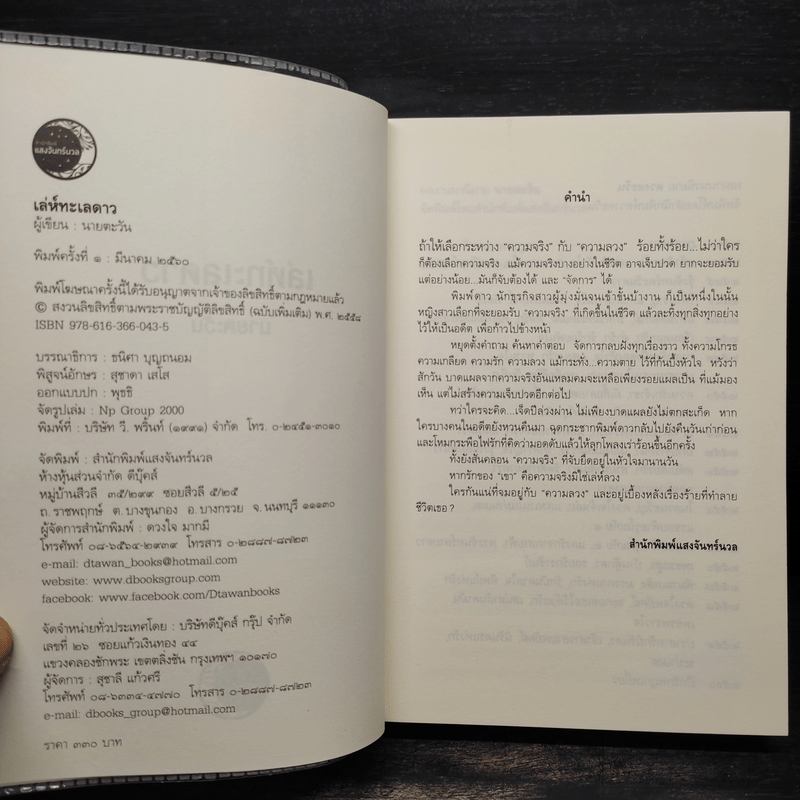 สำนักพิมพ์
แสงจันทร์นวล
เล่ห์ทะเลดาว
ผู้เขียน : นายตะวัน
พิมพ์ครั้งที่ ๑ : มีนาคม ๒๕๖๐
พิมพ์โฆษณาครั้งนี้ได้รับอนุญาตจากเจ้าของลิขสิทธิ์ตามกฎหมายแล้ว
© สงวนลิขสิทธิ์ตามพระราชบัญญัติลิขสิทธิ์ (ฉบับเพิ่มเติม) พ.ศ. ๒๕๕๘
ISBN 978-616-366-043-5
บรรณาธิการ : ธนิศา บุญถนอม
พิสูจน์อักษร : สุชาดา เสโส
ออกแบบปก : พุชชิ
จัดรูปเล่ม : Np Group 2000
พิมพ์ที่ : บริษัท วี. พริ้นท์ (๑๙๙๑) จำกัด โทร. ๐-๒๔๕๑-๓๐๑๐
จัดพิมพ์ : สำนักพิมพ์แสงจันทร์นวล
ห้างหุ้นส่วนจำกัด ดีบุ๊คส์
หมู่บ้านสีวลี ๓๕/๒๙๙ ซอยสีวลี ๕/๒๕
ถ.ราชพฤกษ์ ต.บางขุนกอง อ.บางกรวย จ.นนทบุรี ๑๑๑๓๐
ผู้จัดการสำนักพิมพ์ : ดวงใจ มากมี
โทรศัพท์ ๐๘-๖๕๖๔-๒๙๓๙ โทรสาร ๐-๒๘๘๗-๘๗๒๓
e-mail: dtawan_books@hotmail.com
website: www.dbooksgroup.com
facebook: www.facebook.com/Dtawanbooks
จัดจำหน่ายทั่วประเทศโดย : บริษัทดีบุ๊คส์ กรุ๊ป จำกัด
เลขที่ ๒๖ ซอยแก้วเงินทอง ๔๔
แขวงคลองชักพระ เขตตลิ่งชัน กรุงเทพฯ ๑๐๑๗๐
ผู้จัดการ : สุชาลี แก้วศรี
โทรศัพท์ ๐๘-๖๓๓๔-๔๗๗๐ โทรสาร ๐-๒๘๘๗-๘๗๒๓
e-mail: dbooks_group@hotmail.com
ราคา ๓๓๐ บาท
คำนำ
ถ้าให้เลือกระหว่าง “ความจริง” กับ “ความลวง” ร้อยทั้งร้อย...ไม่ว่าใคร
ก็ต้องเลือกความจริง แม้ความจริงบางอย่างในชีวิต อาจเจ็บปวด ยากจะยอมรับ
แต่อย่างน้อย...มันก็จับต้องได้ และ “จัดการ” ได้
พิมพ์ดาว นักธุรกิจสาวผู้มุ่งมั่นจนเข้าขั้นบ้างาน ก็เป็นหนึ่งในนั้น
หญิงสาวเลือกที่จะยอมรับ “ความจริง” ที่เกิดขึ้นในชีวิต แล้วละทิ้งทุกสิ่งทุกอย่าง
ไว้ให้เป็นอดีต เพื่อก้าวไปข้างหน้า
หยุดตั้งคำถาม ค้นหาคำตอบ จัดการกลบฝังทุกเรื่องราว ทั้งความโกรธ
ความเกลียด ความรัก ความลวง แม้กระทั่ง...ความตาย ไว้ที่ก้นบึ้งหัวใจ หวังว่า
สักวัน บาดแผลจากความจริงอันแหลมคมจะเหลือเพียงรอยแผลเป็น ที่แม้มอง
เห็น แต่ไม่สร้างความเจ็บปวดอีกต่อไป
ทว่าใครจะคิด...เจ็ดปีล่วงผ่าน ไม่เพียงบาดแผลยังไม่ตกสะเก็ด หาก
ใครบางคนในอดีตยังหวนคืนมา ฉุดกระชากพิมพ์ดาวกลับไปยังคืนวันเก่าก่อน
และโหมกระพือไฟรักที่คิดว่ามอดดับแล้วให้ลุกโพลงเร่าร้อนขึ้นอีกครั้ง
ทั้งยังสั่นคลอน “ความจริง” ที่จับยึดอยู่ในหัวใจมานานวัน
หากรักของ “เขา” คือความจริงมิใช่เล่ห์ลวง
ใครกันแน่ที่จมอยู่กับ “ความลวง” และอยู่เบื้องหลังเรื่องร้ายที่ทำลาย
ชีวิตเธอ?
สำนักพิมพ์แสงจันทร์นวล